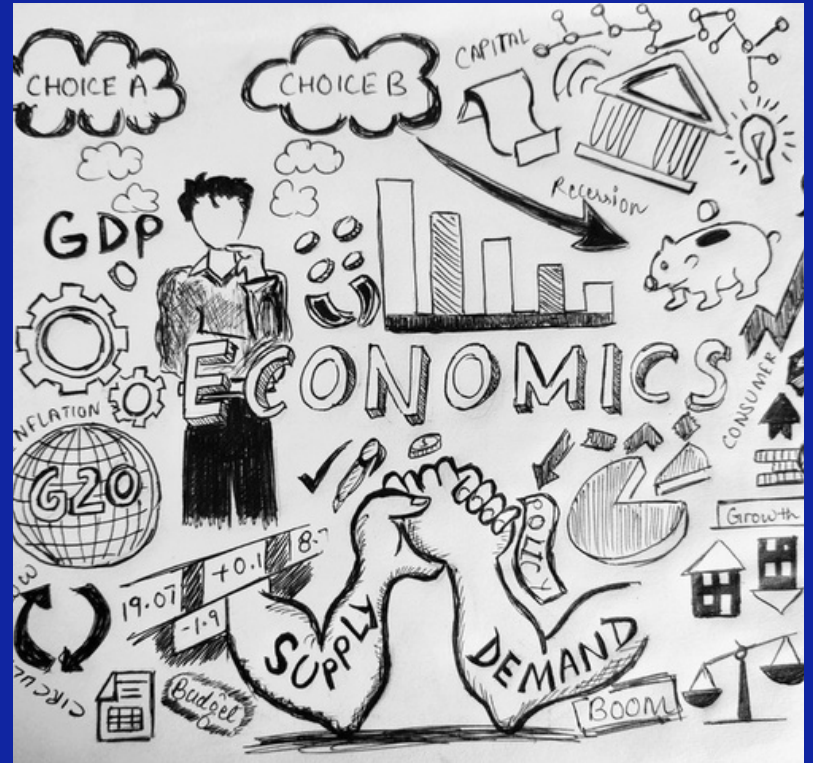 CHOICE A
CHOICE B
CAPITAL
Recession
GDP
ECONOMICS
CONSUMER
NFLATION
G20
POLICY
Growth
19.07
+0.1
8.7
-1.9
SUPPLY
DEMAND
Budget
BOOM